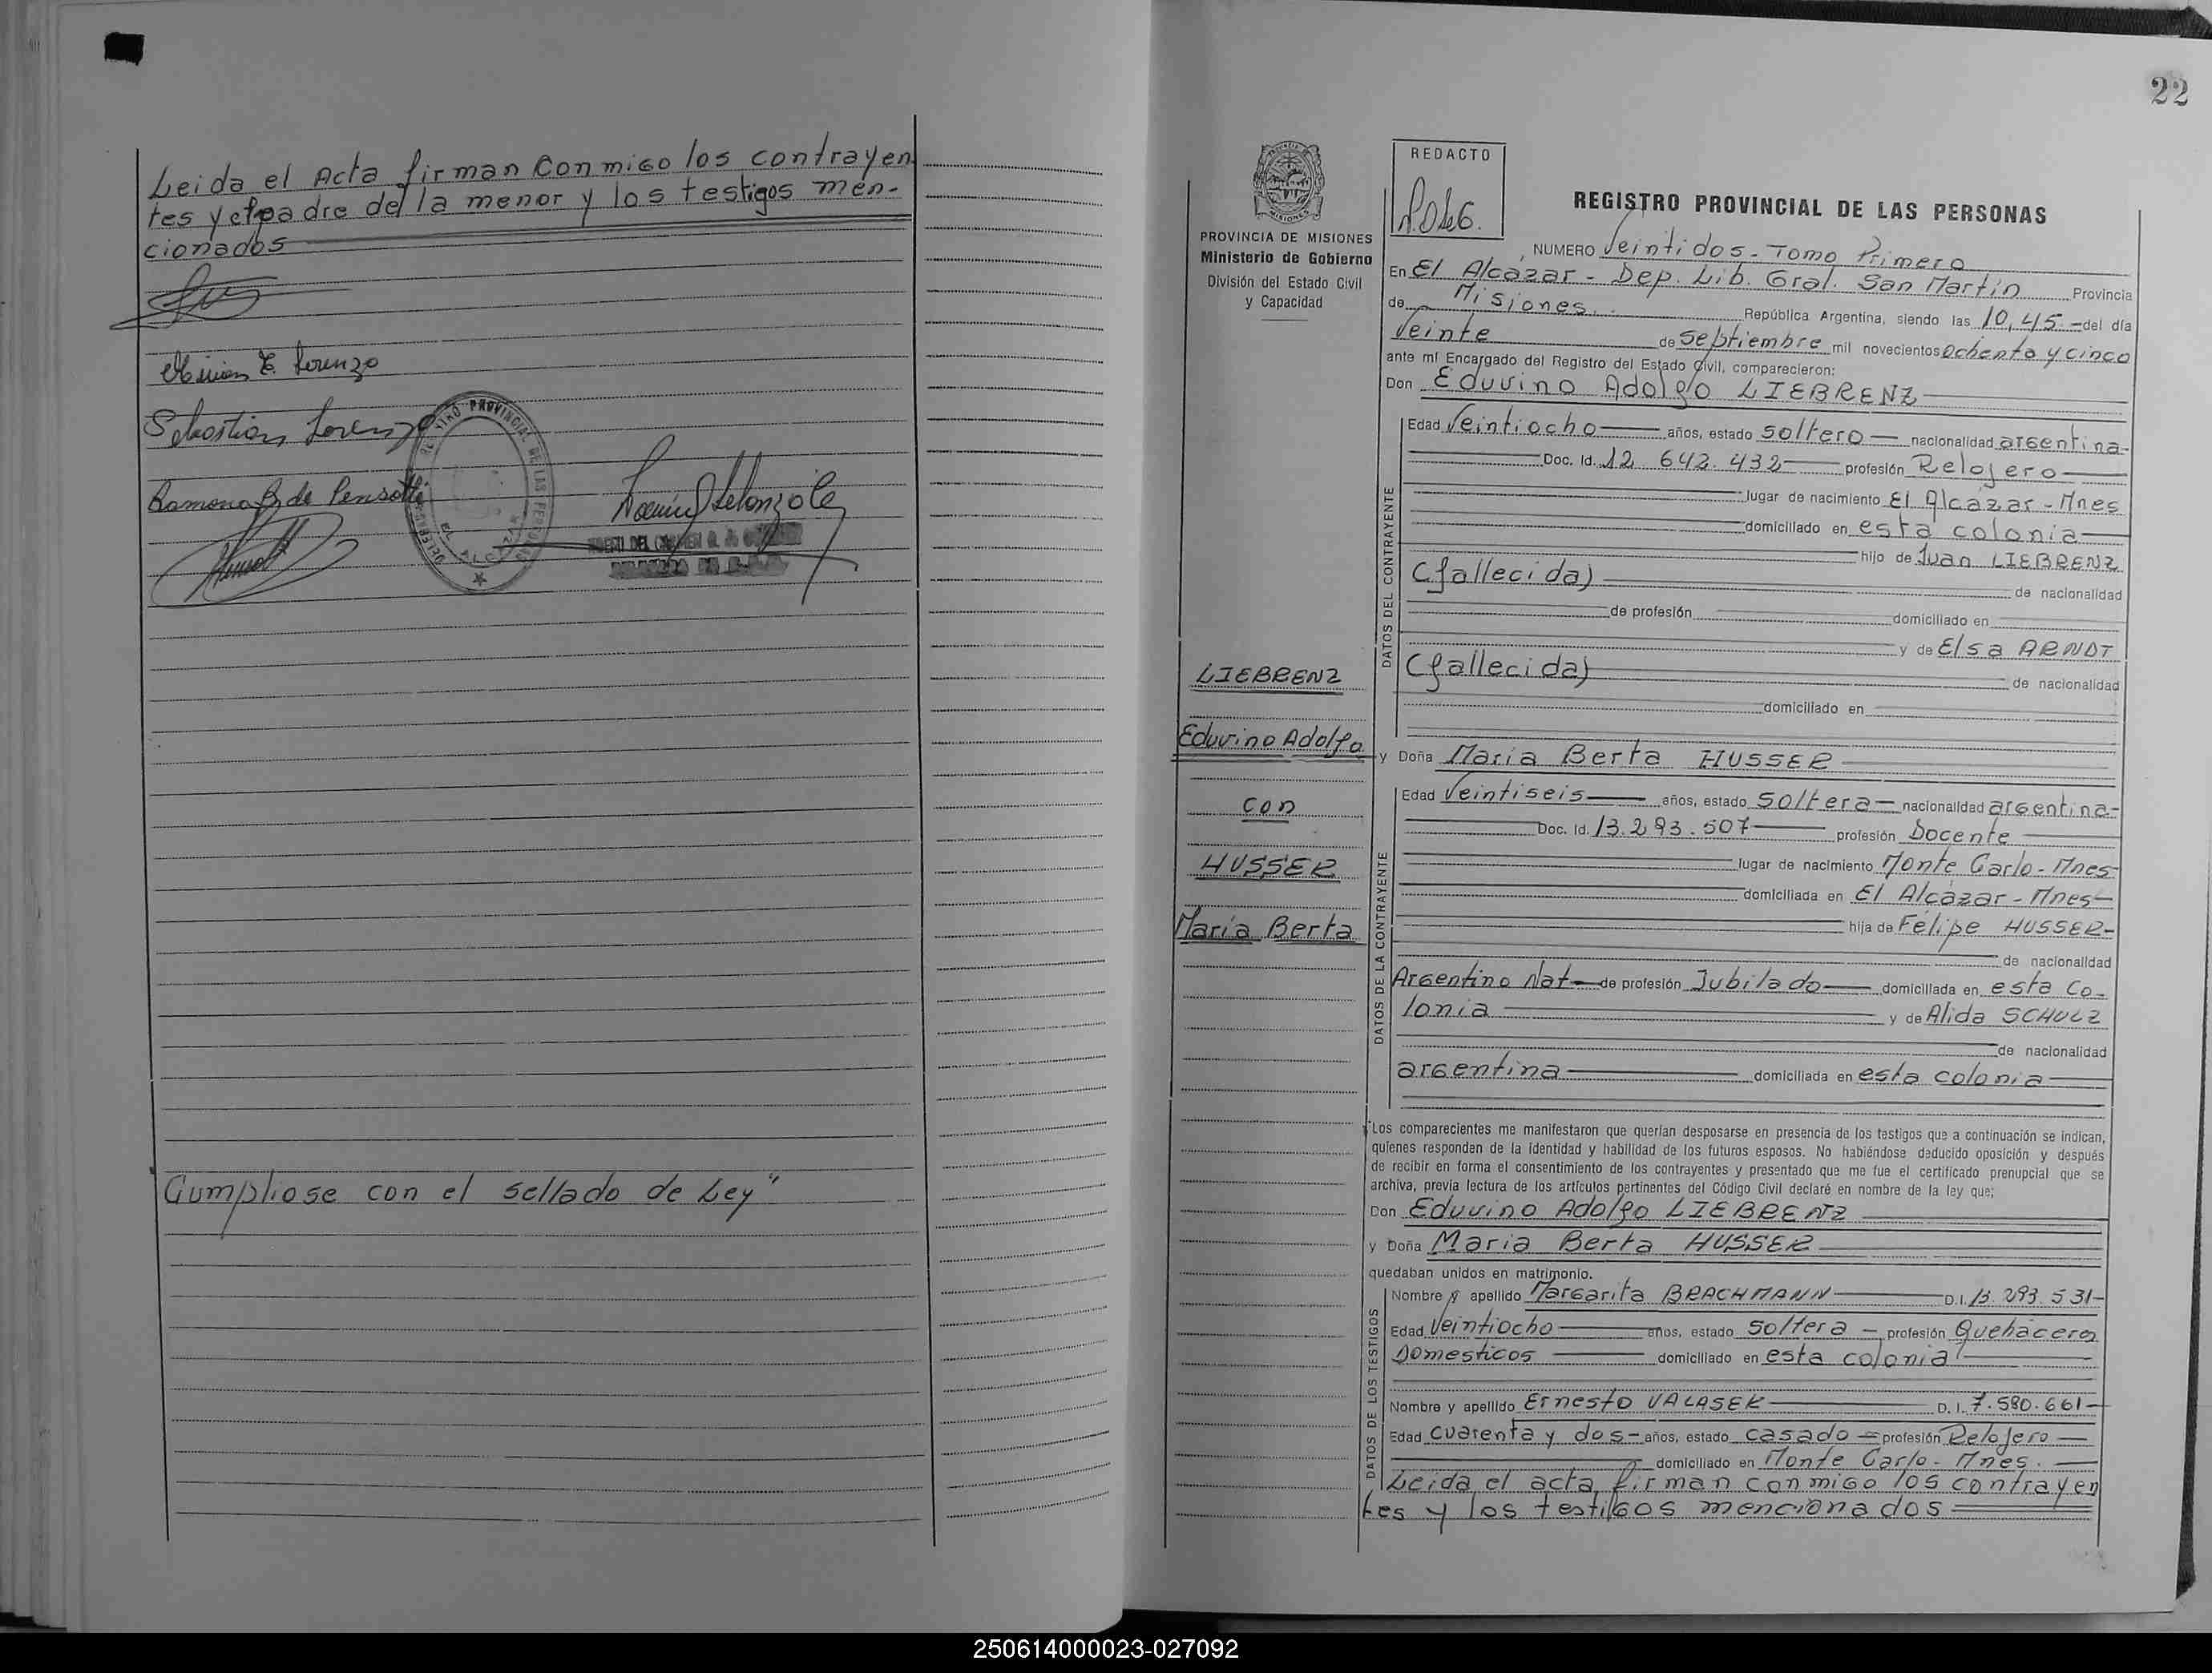 Leida el Acta firman Conmigo los contrayen
tes y el padre de la menor y los testigos men-
cionados
Mirian E. Lorenzo
Sebastian Lorenzo
Ramona B. de Pensotti
EL ALCAZAR
Cumpliose con el sellado de Ley"
22
REDACTO
PROVINCIA DE MISIONES
Ministerio de Gobierno
División del Estado Civil
y Capacidad
LIEBRENZ
Eduvino Adolfo
con
HUSSER
María Berta
REGISTRO PROVINCIAL DE LAS PERSONAS
NUMERO Veintidos - Tomo Primero
En El Alcázar - Dep. Lib. Gral. San Martín Provincia
de Misiones República Argentina, siendo las 10,45.- del día
Veinte de Septiembre mil novecientos Ochenta y cinco
ante mí Encargado del Registro del Estado Civil, comparecieron:
Don Eduvino Adolfo LIEBRENZ
DATOS DEL CONTRAYENTE
Edad Veintiocho años, estado Soltero nacionalidad argentina-
Doc. Id. 12 642.432 profesión Relojero
lugar de nacimiento El Alcázar - Mnes
domiciliado en esta colonia
hijo de Juan LIEBRENZ
(fallecida) de nacionalidad
de profesión domiciliado en
y de Elsa ARNDT
(fallecida) de nacionalidad
domiciliado en
y Doña María Berta HUSSER
DATOS DE LA CONTRAYENTE
Edad Veintiseis años, estado Soltera nacionalidad argentina-
Doc. Id. 13.293.507 profesión Docente
lugar de nacimiento Monte Carlo - Mnes
domiciliada en El Alcázar - Mnes-
hija de Felipe HUSSER-
de nacionalidad
Argentino Nat- de profesión Jubilado domiciliada en esta Co-
lonia y de Alida SCHULZ
de nacionalidad
argentina domiciliada en esta colonia
Los comparecientes me manifestaron que querían desposarse en presencia de los testigos que a continuación se indican,
quienes responden de la identidad y habilidad de los futuros esposos. No habiéndose deducido oposición y después
de recibir en forma el consentimiento de los contrayentes y presentado que me fue el certificado prenupcial que se
archiva, previa lectura de los artículos pertinentes del Código Civil declaré en nombre de la ley que;
Don Eduvino Adolfo LIEBRENZ
y Doña Maria Berta HUSSER
quedaban unidos en matrimonio.
DATOS DE LOS TESTIGOS
Nombre y apellido Margarita BRACHMANN D.I. 13.293.531-
Edad Veintiocho años, estado Soltera - profesión Quehaceres
Domesticos domiciliado en esta colonia
Nombre y apellido Ernesto VALASEK D. I. 7.580.661-
Edad cuarenta y dos- años, estado casado - profesión Relojero
domiciliado en Monte Carlo - Mnes.
Leida el acta firman conmigo los contrayen
tes y los testigos mencionados
250614000023-027092